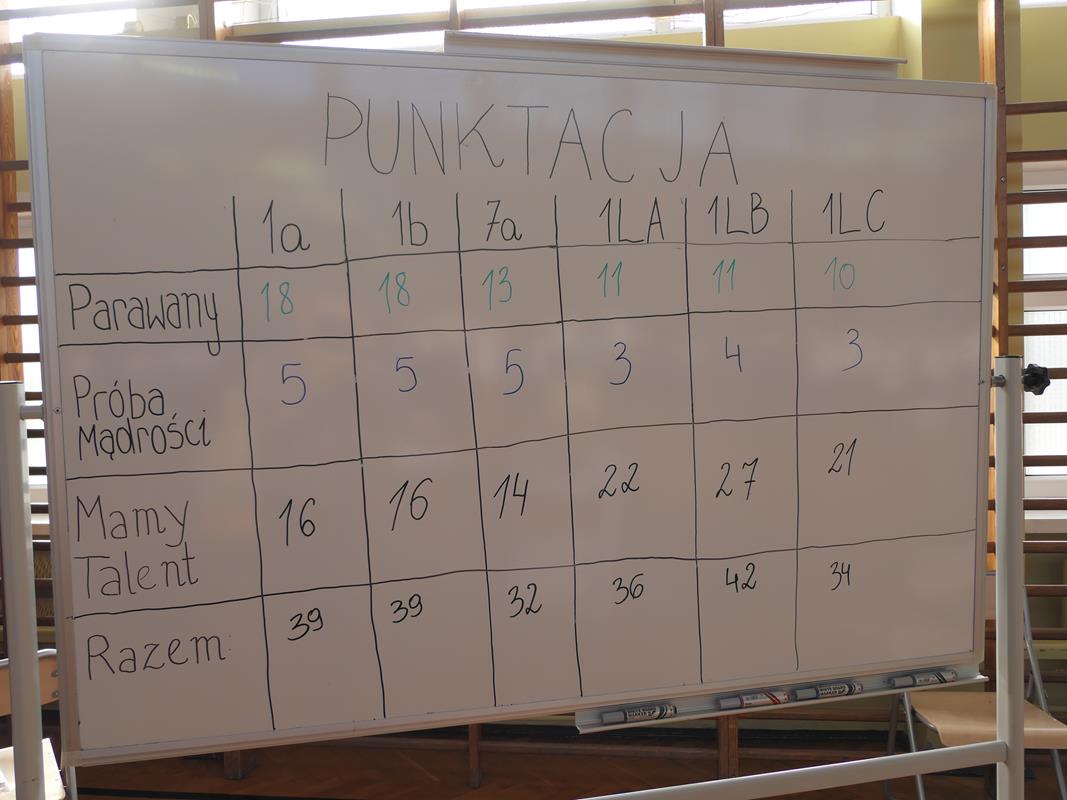 PUNKTACJA
1a 1b 7a 1LA 1LB 1LC
Parawany 18 18 13 11 11 10
Próba
Mądrości 5 5 5 3 4 3
Mamy
Talent 16 16 14 22 27 21
Razem: 39 39 32 36 42 34